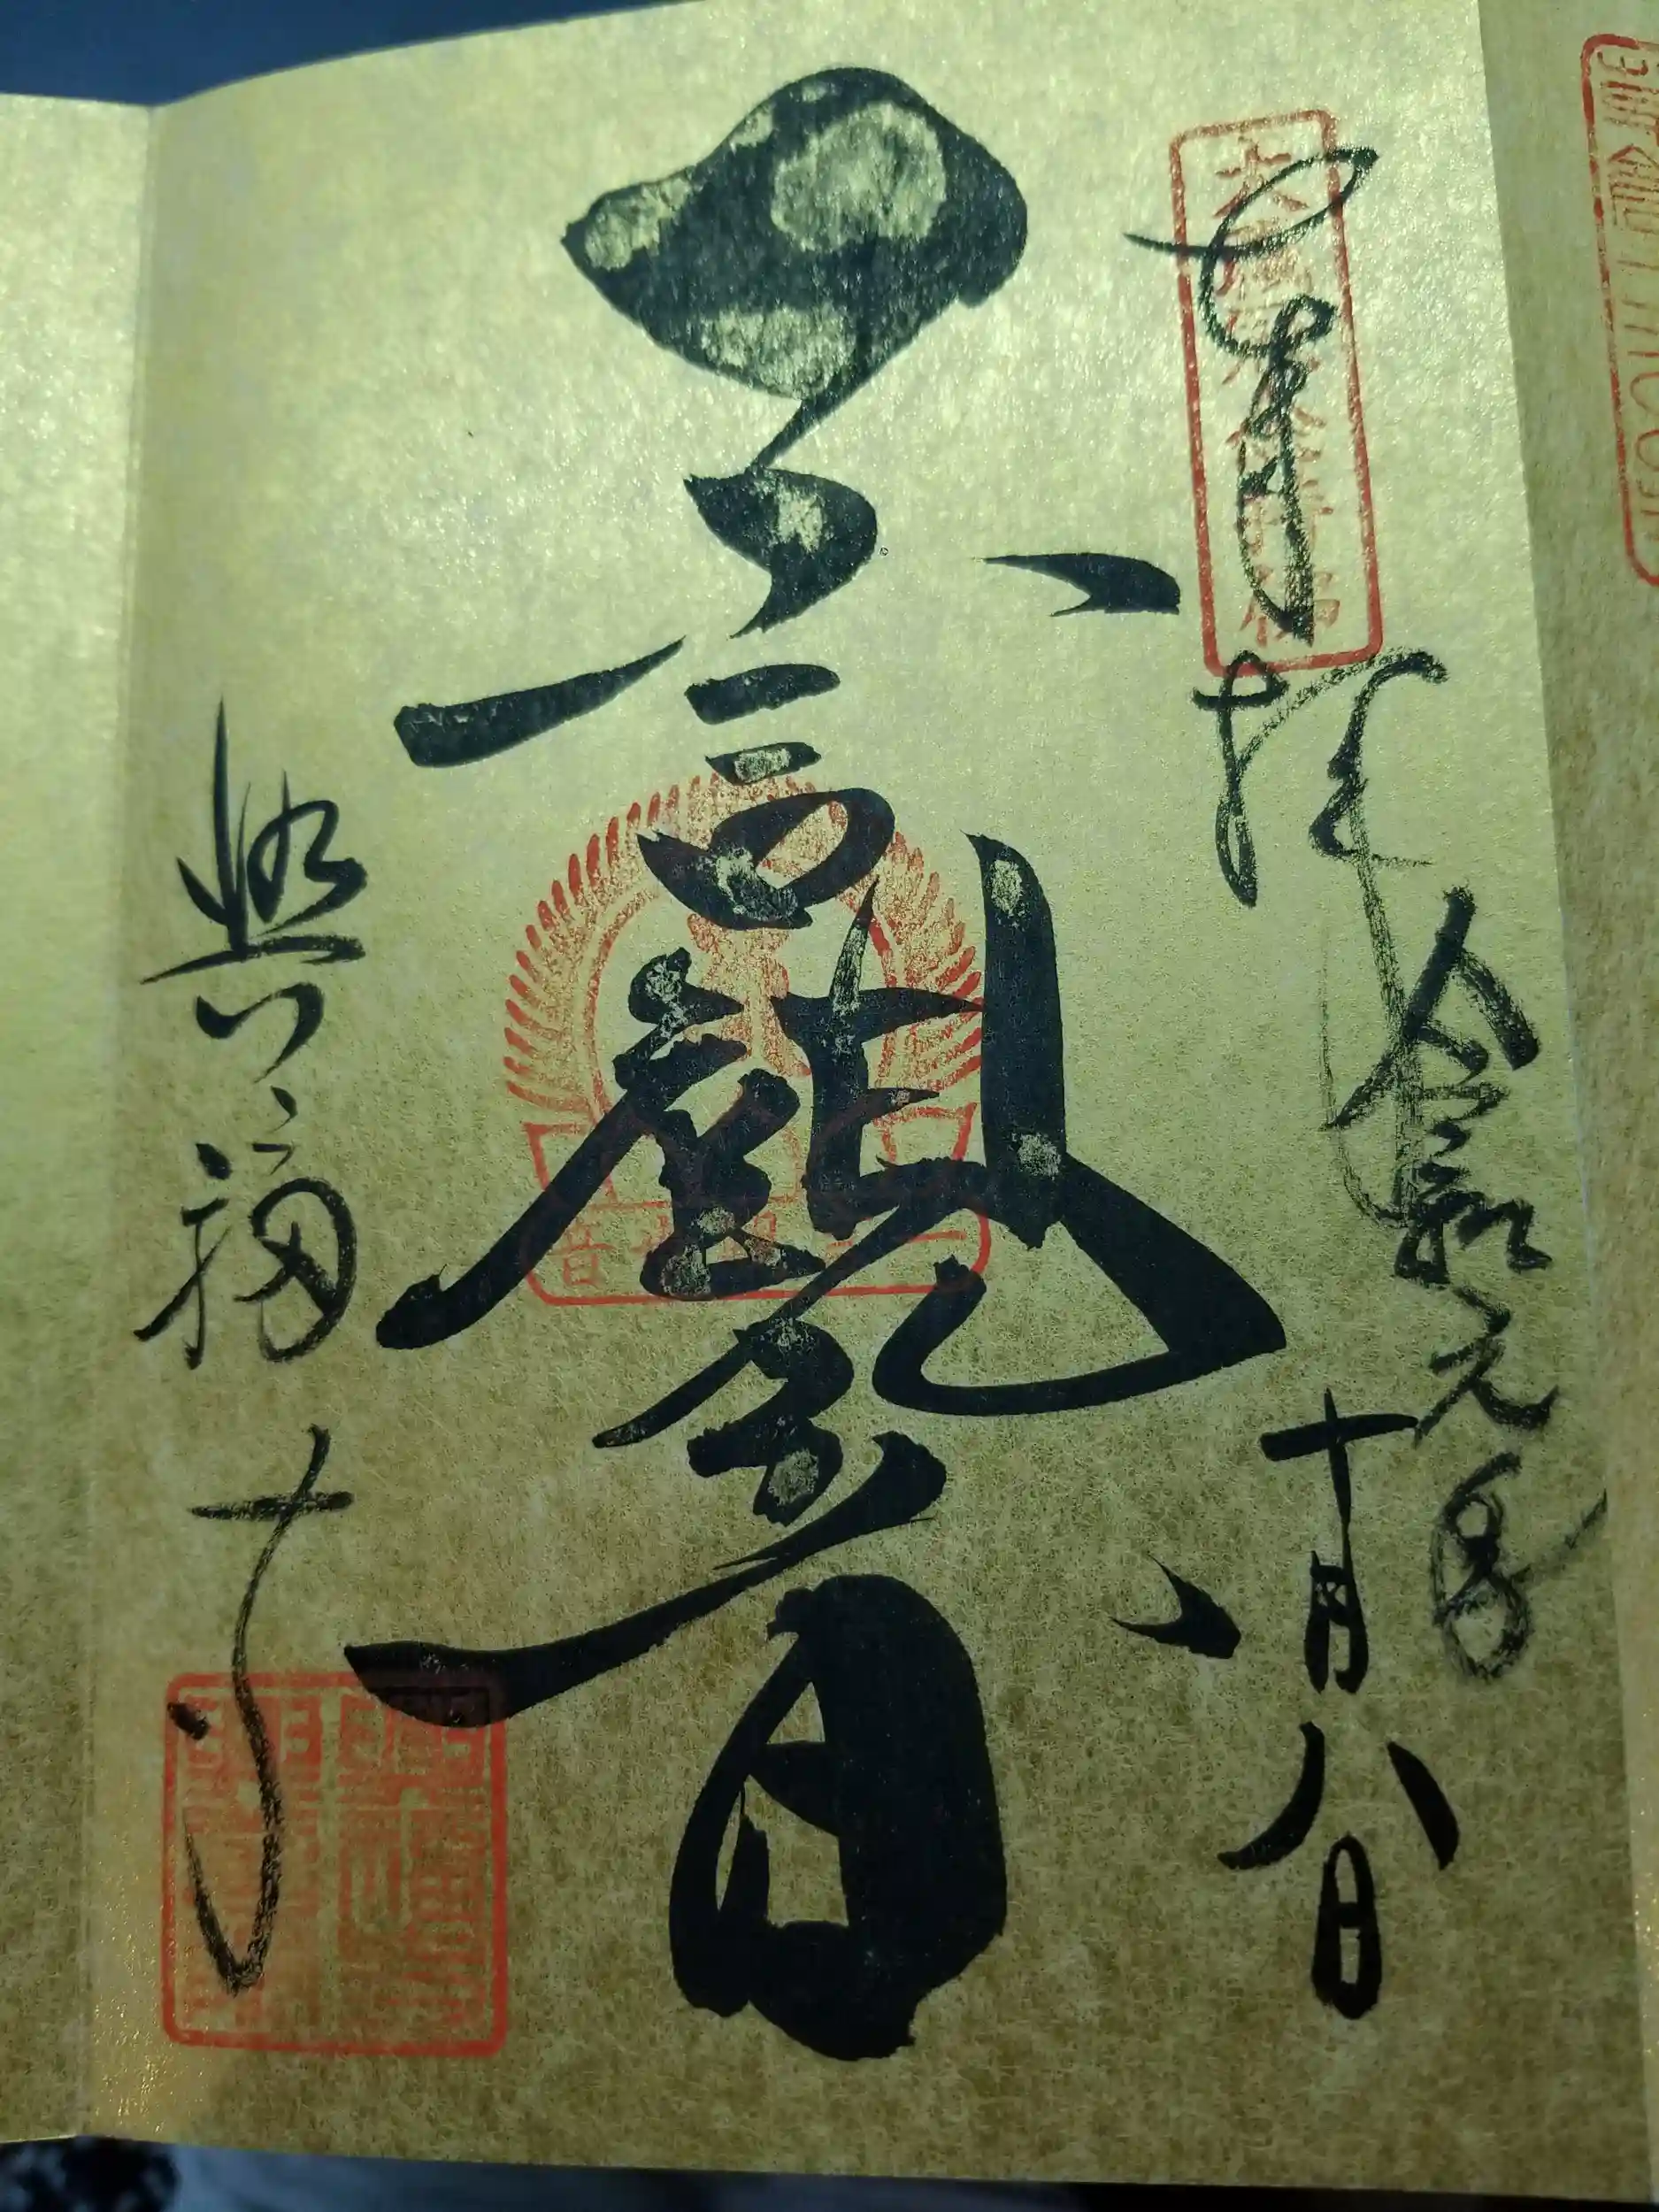 奉拝
令和元年
十月八日
一言観音
興福寺